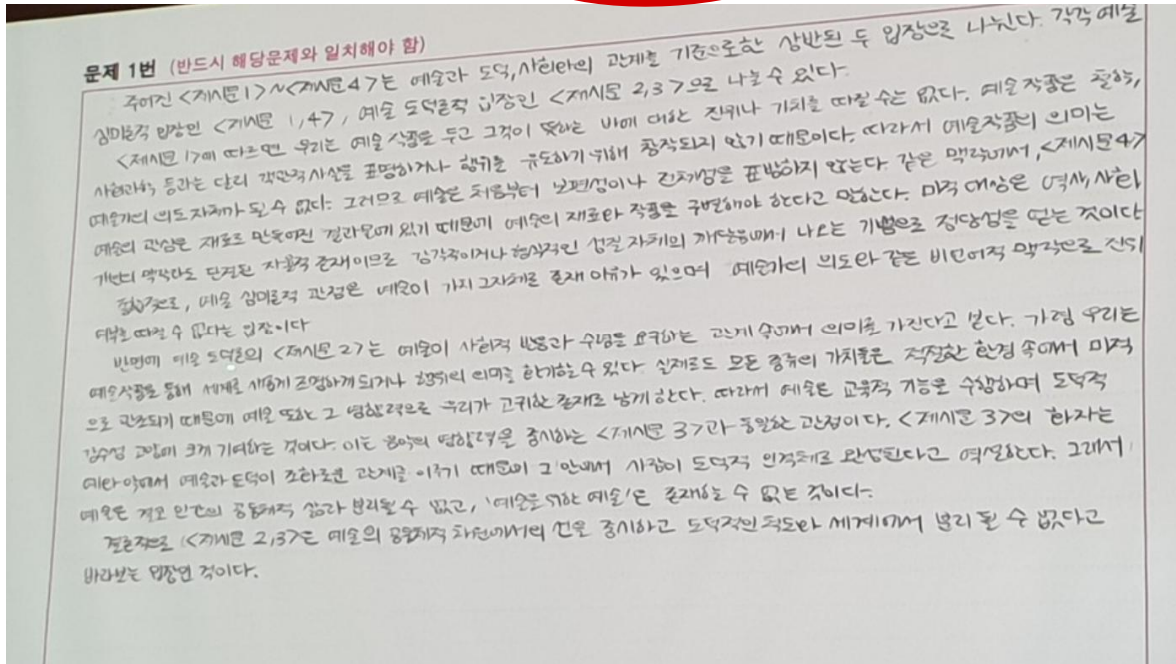 문제 1번 (반드시 해당문제와 일치해야 함)
주어진 <제시문1>~<제시문4>는 예술과 도덕,사회와의 관계를 기준으로한 상반된 두 입장으로 나뉜다. 각각 예술
심미론적 입장인 <제시문 1,4>, 예술 도덕론적 입장인 <제시문 2,3>으로 나눌 수 있다.
<제시문 1>에 따르면 우리는 예술 작품을 두고 그것이 뜻하는 바에 대한 진위나 가치를 따질 수는 없다. 예술작품은 철학,
사회과학 등과는 달리 객관적사실을 표명하거나 행위를 유도하기 위해 창작되지 않기 때문이다. 따라서 예술작품의 의미는
예술가의 의도자체가 될 수 없다. 그러므로 예술은 처음부터 보편성이나 전체성을 표방하지 않는다. 같은 맥락에서, <제시문4>
예술의 관심은 재료로 만들어진 결과물에 있기 때문에 예술의 재료와 작품을 구별해야 한다고 말한다. 미적 대상은 역사,사회
개념의 맥락과도 단절된 자율적 존재이므로 감각적이거나 형식적인 성질 자체의 깨달음에서 나오는 기쁨으로 정당성을 얻는 것이다
예술 심미론적 관점은 예술이 가지 그자체로 존재 이유가 있으며 예술가의 의도와 같은 비언어적 맥락으로 진위
여부를 따질 수 없다는 입장이다
반면에 예술 도덕론의 <제시문 2>는 예술이 사회적 반응과 수념을 요구하는 관계 속에서 의미를 가진다고 본다. 가령 우리는
예술작품을 통해 세계를 새롭게 조명하게 되거나 행위의 의미를 환기할 수 있다. 실제로도 모든 종류의 가치들은 적절한 환경 속에서 미적
으로 관조되기 때문에 예술 또한 그 영향력으로 우리가 고귀한 존재로 남게 한다. 따라서 예술은 교육적 기능을 수행하며 도덕적
감수성 고양에 크게 기여하는 것이다. 이는 음악의 영향력을 중시하는 <제시문 3>과 동일한 관점이다. <제시문 3>의 화자는
예와 악에서 예술과 도덕이 조화로운 관계를 이루기 때문에 그 안에서 사람이 도덕적 인격체로 완성된다고 역설한다. 그래서
예술은 결코 인간의 공동체적 삶과 분리될 수 없고, '예술을 위한 예술'은 존재할 수 없는 것이다.
결론적으로 <제시문 2,3>은 예술의 공동체적 차원에서의 선을 중시하고 도덕적인 척도와 세계에서 분리 될 수 없다고
바라보는 입장인 것이다.